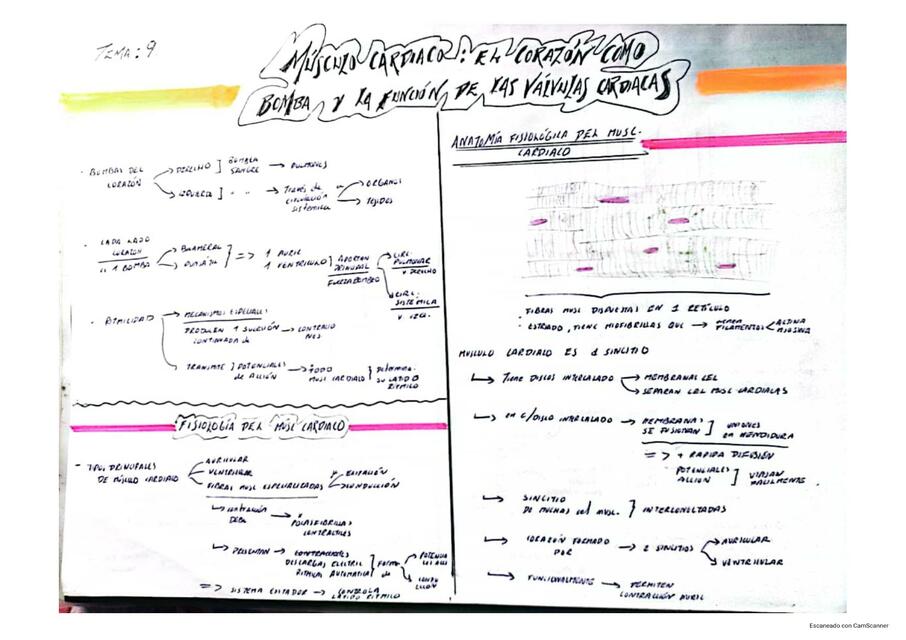 TEMA: 9
MÚSCULO CARDIACO: EL CORAZÓN COMO
BOMBA Y LA FUNCIÓN DE LAS VÁLVULAS CARDIACAS
· BOMBAS DEL CORAZÓN
DERECHO ] BOMBEA SANGRE → PULMONES
IZQUIERD ] " " → Través de CIRCULACIÓN SISTÉMICA
ORGANOS
TEJIDOS
· CADA LADO CORAZÓN
1 BOMBA
BICAMERAL
PULSÁTIL
=> 1 AURIC.
1 VENTRÍCULO
APORTAN PRINCIPAL FUERZA BOMBEO
CIRC. PULMONAR
V. DERECHO
CIRC. SISTÉMICA
V. IZQ.
· RITMICIDAD
MECANISMOS ESPECIALES
PRODUCEN 1 SUCESIÓN → CONTRACIO
CONTINUADA de NES
TRANSMITE ] POTENCIALES de ACCIÓN → TODO MUSC CARDIACO
SU LATIDO RITMICO
FISIOLOGÍA DEL MUSC CARDIACO
- TIPOS PRINCIPALES
DE MÚSCULO CARDIACO
AURICULAR
VENTRICULAR
FIBRAS MUSC ESPECIALIZADAS
EXCITACIÓN
CONDUCCIÓN
CONTRACCIÓN DÉBIL → POCAS FIBRILLAS CONTRACTILES
PRESENTAN →
DESCARGAS ELECTRIC
RITMICA AUTOMATICA
=> SISTEMA EXCITADOR → CONTROLA LATIDO RITMICO
ANATOMÍA FISIOLÓGICA DEL MUSC.
CARDIACO
· FIBRAS MUSC DISPUESTAS EN 1 RETÍCULO
· ESTRIADO, TIENE MIOFIBRILLAS QUE →
FILAMENTOS
ACTINA
MIOSINA
MUSCULO CARDIACO ES 1 SINCITIO
TIENE DISCOS INTERCALADO
MEMBRANAS CEL
SEPARAN CEL MUSC CARDIACAS
EN C/DISCO INTERCALADO → MEMBRANAS SE FUSIONAN ] UNIONES EN HENDIDURA
=> + RAPIDA DIFUSIÓN
POTENCIALES ACCION ] VIAJAN FACILMENTE.
SINCITIO
DE MUCHAS cel MUSC. } INTERCONECTADAS
CORAZÓN FORMADO POR → 2 SINCITIOS
AURICULAR
VENTRICULAR
FUNCIONALMENTE → PERMITEN
CONTRACCIÓN AURIC
Escaneado con CamScanner